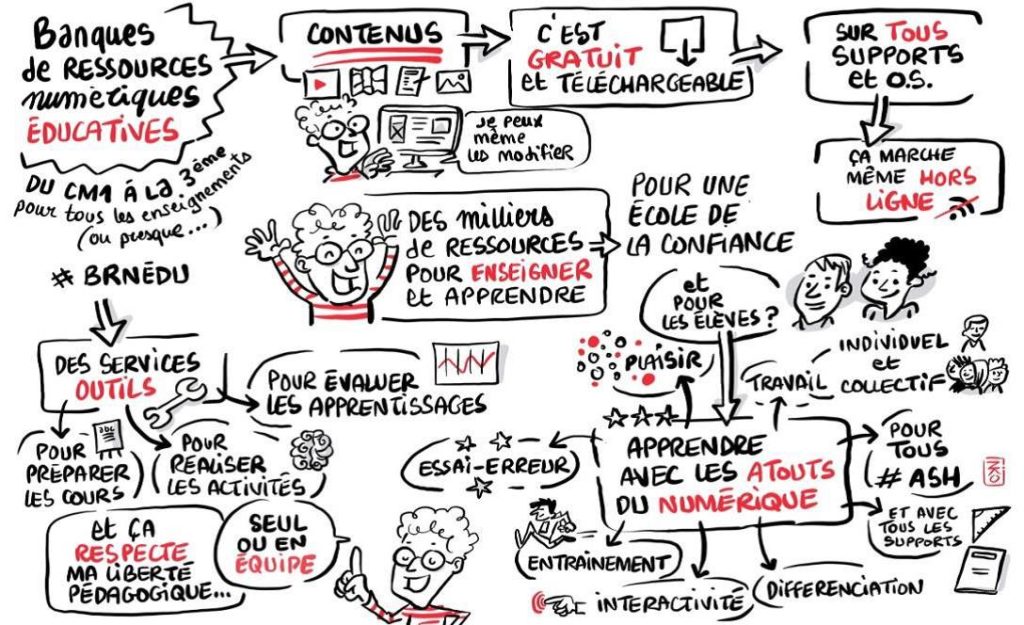 Banques
de RESSOURCES
numériques
ÉDUCATIVES
DU CM1 À LA 3ème
pour tous les enseignements
(ou presque...)
# BRNÉDU
CONTENUS
je peux
même
les modifier
C'EST
GRATUIT
et TÉLÉCHARGEABLE
SUR TOUS
SUPPORTS
et O.S.
ÇA MARCHE
MÊME HORS
LIGNE
DES milliers
de RESSOURCES
POUR ENSEIGNER
et APPRENDRE
POUR UNE
ÉCOLE DE
LA CONFIANCE
et
POUR
LES ÉLÈVES ?
DES SERVICES
OUTILS
POUR ÉVALUER
LES APPRENTISSAGES
abc
POUR
PRÉPARER
LES COURS
POUR
RÉALISER
LES ACTIVITÉS
et ÇA
RESPECTE
MA LIBERTÉ
PÉDAGOGIQUE...
SEUL
OU EN
ÉQUIPE
APPRENDRE
AVEC LES ATOUTS
DU NUMÉRIQUE
PLAISIR
TRAVAIL
INDIVIDUEL
et
COLLECTIF
ESSAI-ERREUR
POUR
TOUS
# ASH
ET AVEC
TOUS LES
SUPPORTS
ENTRAINEMENT
INTERACTIVITÉ
DIFFERENCIATION